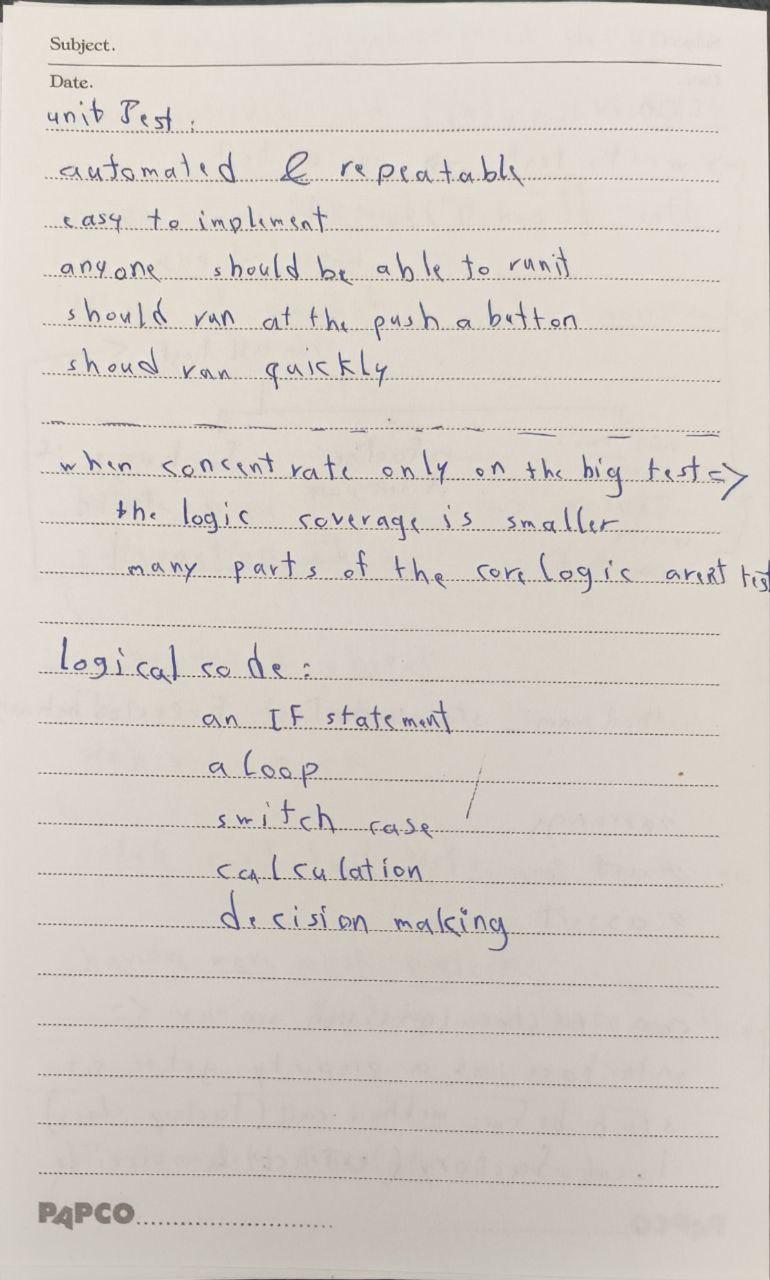 Subject.
Date.
unit Test :
automated & repeatable
easy to implement
anyone should be able to runit
should run at the push a button
shoud ran quickly
when concentrate only on the big test =>
the logic coverage is smaller
many parts of the core logic arent test
logical code :
an IF statement
a loop
switch case
calculation
decision making
PAPCO